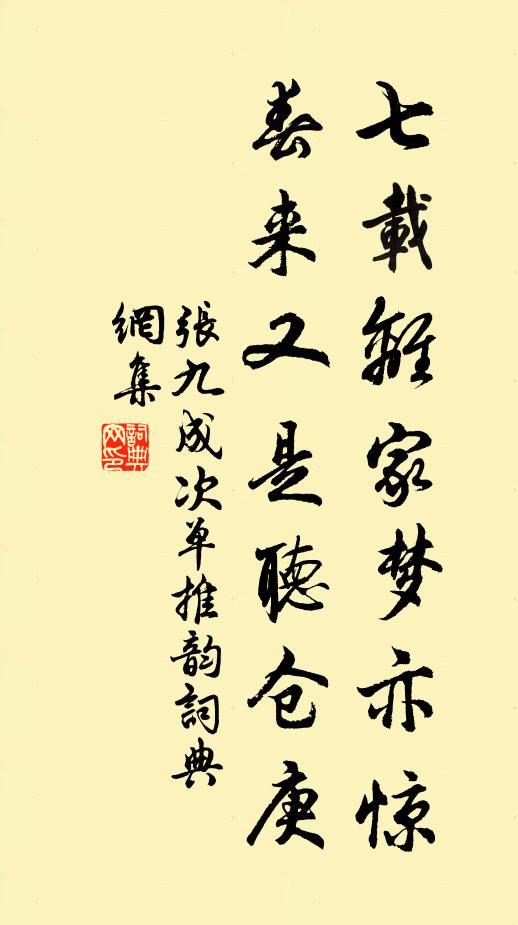 七載離家梦亦惊
春来又是聽仓庚
張九成次单推韵詞典
網集
詞典网印